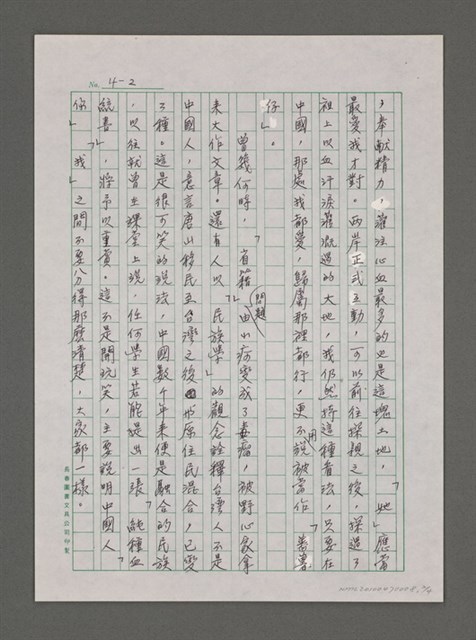 No. 4-2
，奉献精力，灌注心血最多的也是這塊土地，「她」應當
最愛我才對。兩岸正式互動，可以前往探親之後，探過了
祖上以血汗淚灌溉過的大地，我仍然持這種看法，只要在
中國，那處我都愛，歸屬那裡都行，更不用說被當作「蕃薯
仔」。
曾幾何時，「省籍問題」由小病變成了毒瘤，被野心家拿
來大作文章。還有人以「民族學」的觀念詮釋台灣人不是
中國人，意言唐山移民至台灣之後與原住民混合，已變
了種。這是很可笑的說法，中國數千年來便是融合的民族
，以往就曾坐課堂上說，任何學生若能提出一張「純種血
統書」，將予以重賞。這不是開玩笑，主要說明中國人
你」「我」之間不要分得那麼清楚，大家都一樣。
長春圖書文具公司印製